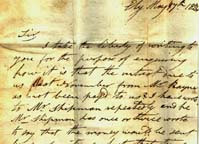 Ely May 17th 182
Sir
I take the liberty of writing to
you for the purpose of enquiring
how it is that the interest due to
us last from Mr Rayne
as not been paid to us I had wrote
to Mr Shipman repeatedly and he
Mr Shipman has once or twice wrote
to say that the money would be sent